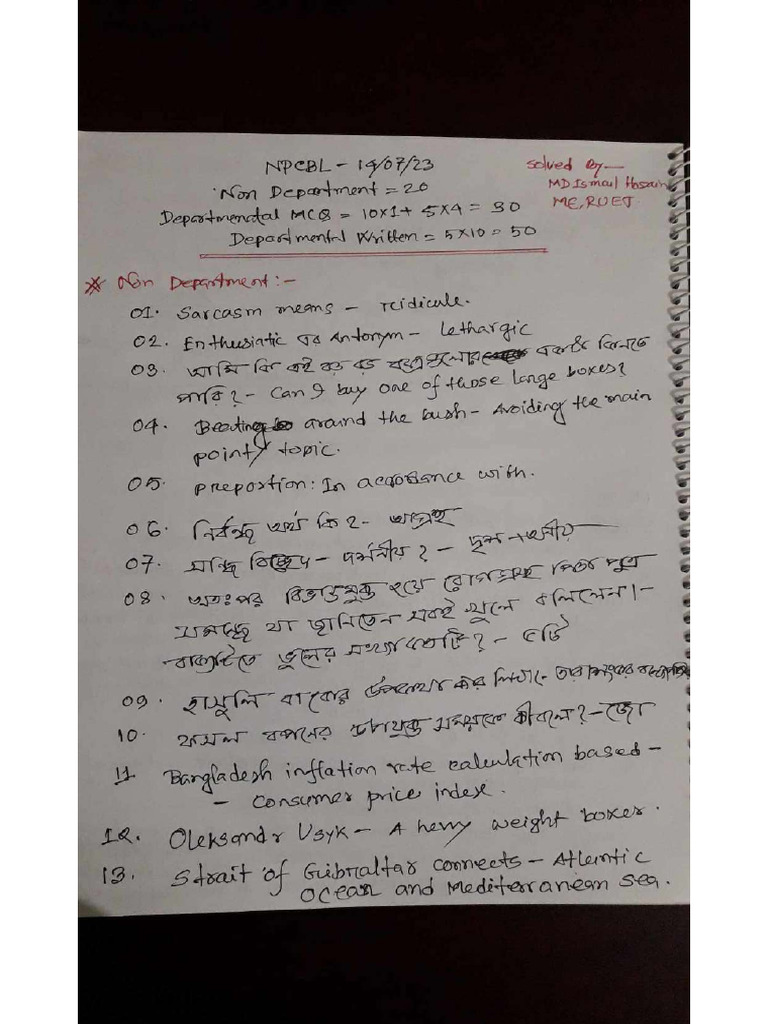 NPCBL - 14/07/23
Solved By -
MD Ismail Hosain
ME, RUET
Non Department = 20
Departmenatal MCQ = 10x1 + 5x4 = 30
Departmental Written = 5x10 = 50
* Non Department:-
01. Sarcasm means - rcidicule.
02. Enthusiatic এর Antonym - Lethargic
03. আমি কি ঐ বড় বড় বাক্সগুলোর একটি কিনতে
পারি? - Can I buy one of those large boxes?
04. Beating around the bush - Avoiding the main
point/topic.
05. prepostion: In accordance with.
06. নির্বন্ধ অর্থ কি? - আগ্রহ
07. সন্ধি বিচ্ছেদ - দর্শনীয়? - দৃশ + অনীয়
08. অতঃপর হয়ে পিতা পুত্র
যা জানিতেন সবই খুলে বলিলেন।-
বাক্যটিতে ভুলের সংখ্যা কতটি? - ৫টি
09. হাসুলি বাকের উপকথা কার লিখা - তারাশংকর
10. ফসল বপনের উপযুক্ত সময়কে কী বলে? - জো
11. Bangladesh inflation rate calculation based -
- Consumer price index.
12. Oleksandr Usyk - A hevry weight boxer.
13. Strait of Gibraltar connects - Atlantic
Ocean and Mediterranean Sea.